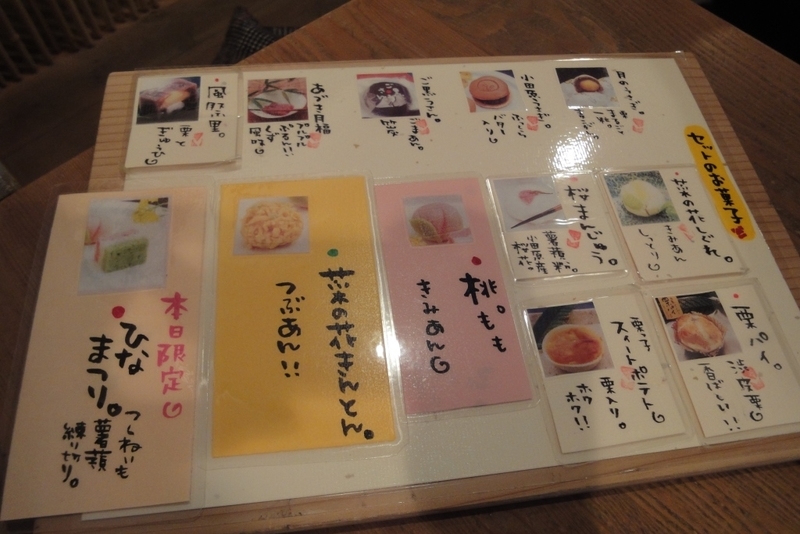 セットのお菓子
月のうさぎ。
小田原うさぎ。
バター
入り
あづき月福
風祭の里。
栗と
ぎゅうひ
菜の花しぐれ。
きみあん
しっとり
桜まんじゅう。
薯蕷粉。
小田原産
桜花。
栗パイ。
渋皮栗
香ばしい!!
栗子
スイートポテト
栗入り。
ホク
ホク!!
桃。もも
きみあん
菜の花きんとん。
つぶあん!!
本日限定
ひな
まつり。
つくねいも
薯蕷
練り切り。